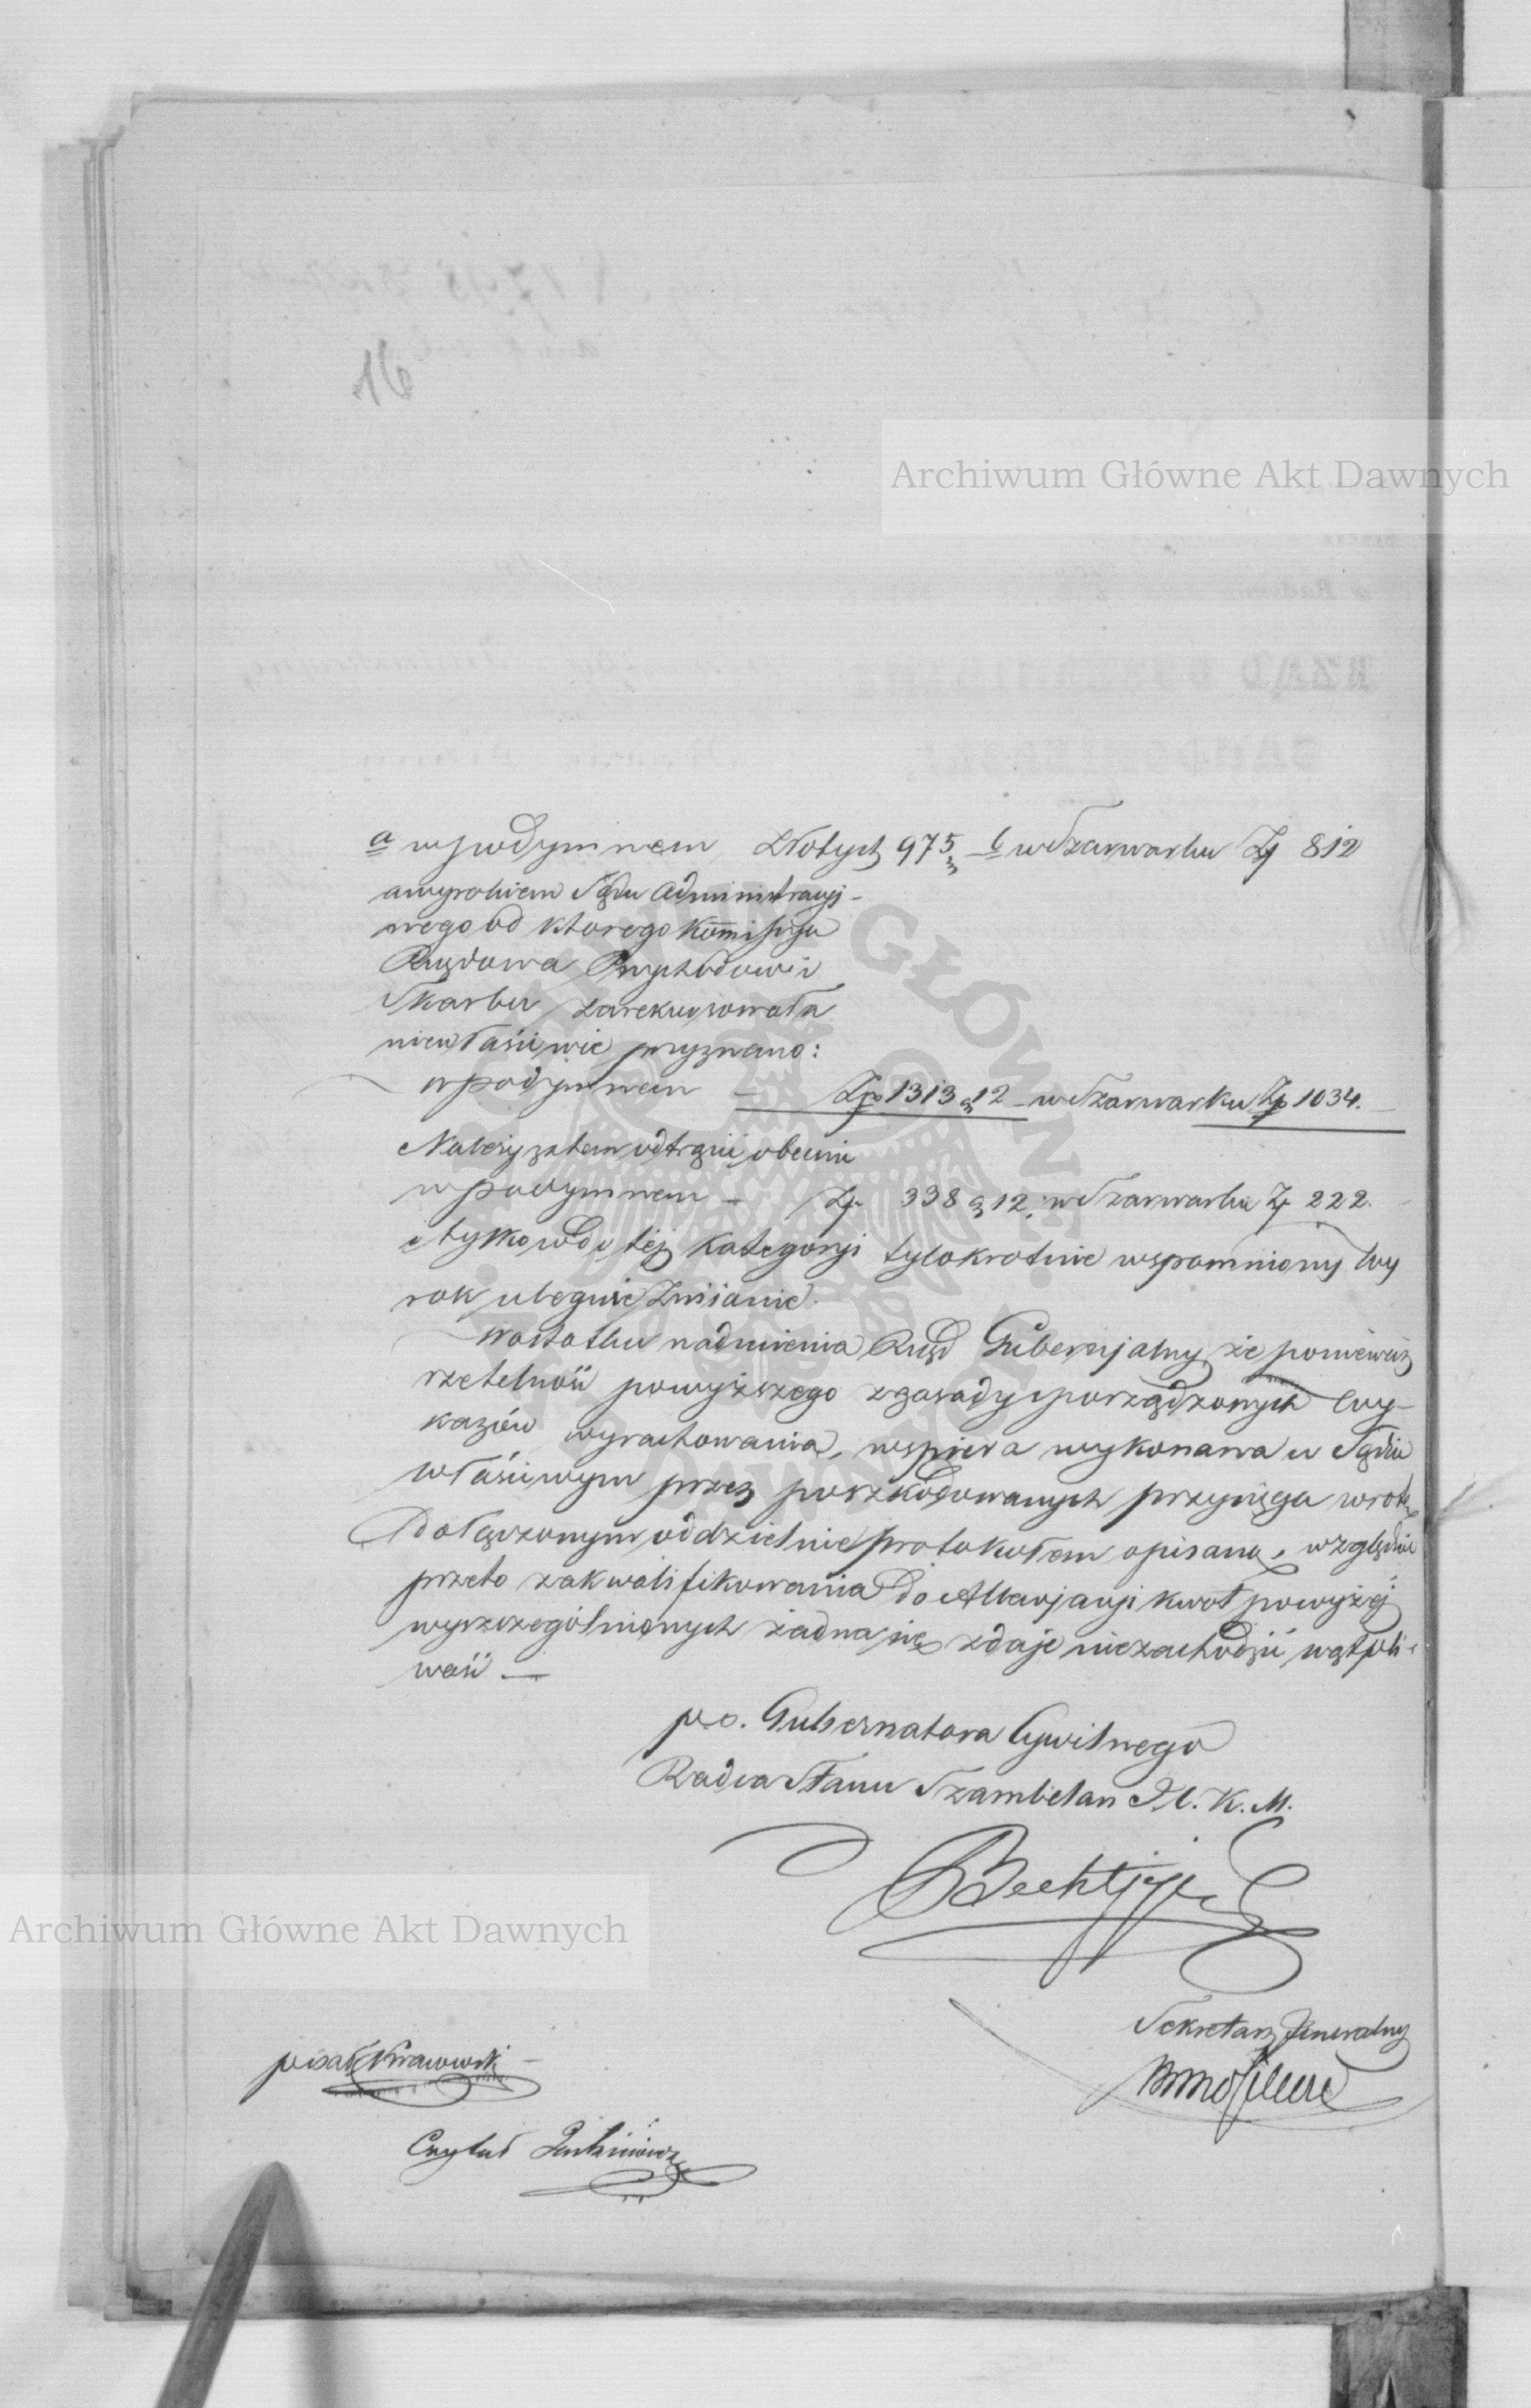 Archiwum Główne Akt Dawnych
a w podymnem Złotych 975 – b w Szarwarku Zł 812
a wyrokiem Sądu Administracyj-
nego od ktorego Kommissya
Rządowa Przychodów i
Skarbu zarekursowała
niewłaściwie przyznano:
w podymnem – Złp 1313 g 12 – w Szarwarku Złp 1034.
Należy zatem odtrącić obecnie
w podymnem – Zł. 338 g 12. w Szarwarku Zł 222.
i tylko w do tej kategoryi tylokrotnie wspomniony wy
rok ulegnie zmianie.
Wostatku nadmienia Rząd Gubernjalny że ponieważ
rzetelność powyższego z zasady sporządzonych wy-
kazów wyrachowania, wspiera wykonana w Sądzie
właściwym przez poszkodowanych przysięga w rotę
dołączonym oddzielnie protokołem opisaną, względnie
przeto zakwalifikowania do Allewjacyi kwot powyżéj
wyszczególnionych żadna się zdaje niezachodzić wątpli-
wość —
p.o. Gubernatora Cywilnego
Radca Stanu Szambelan J. C. K. M.
Sekretarz Jeneralny
Archiwum Główne Akt Dawnych
pisał
Czytał